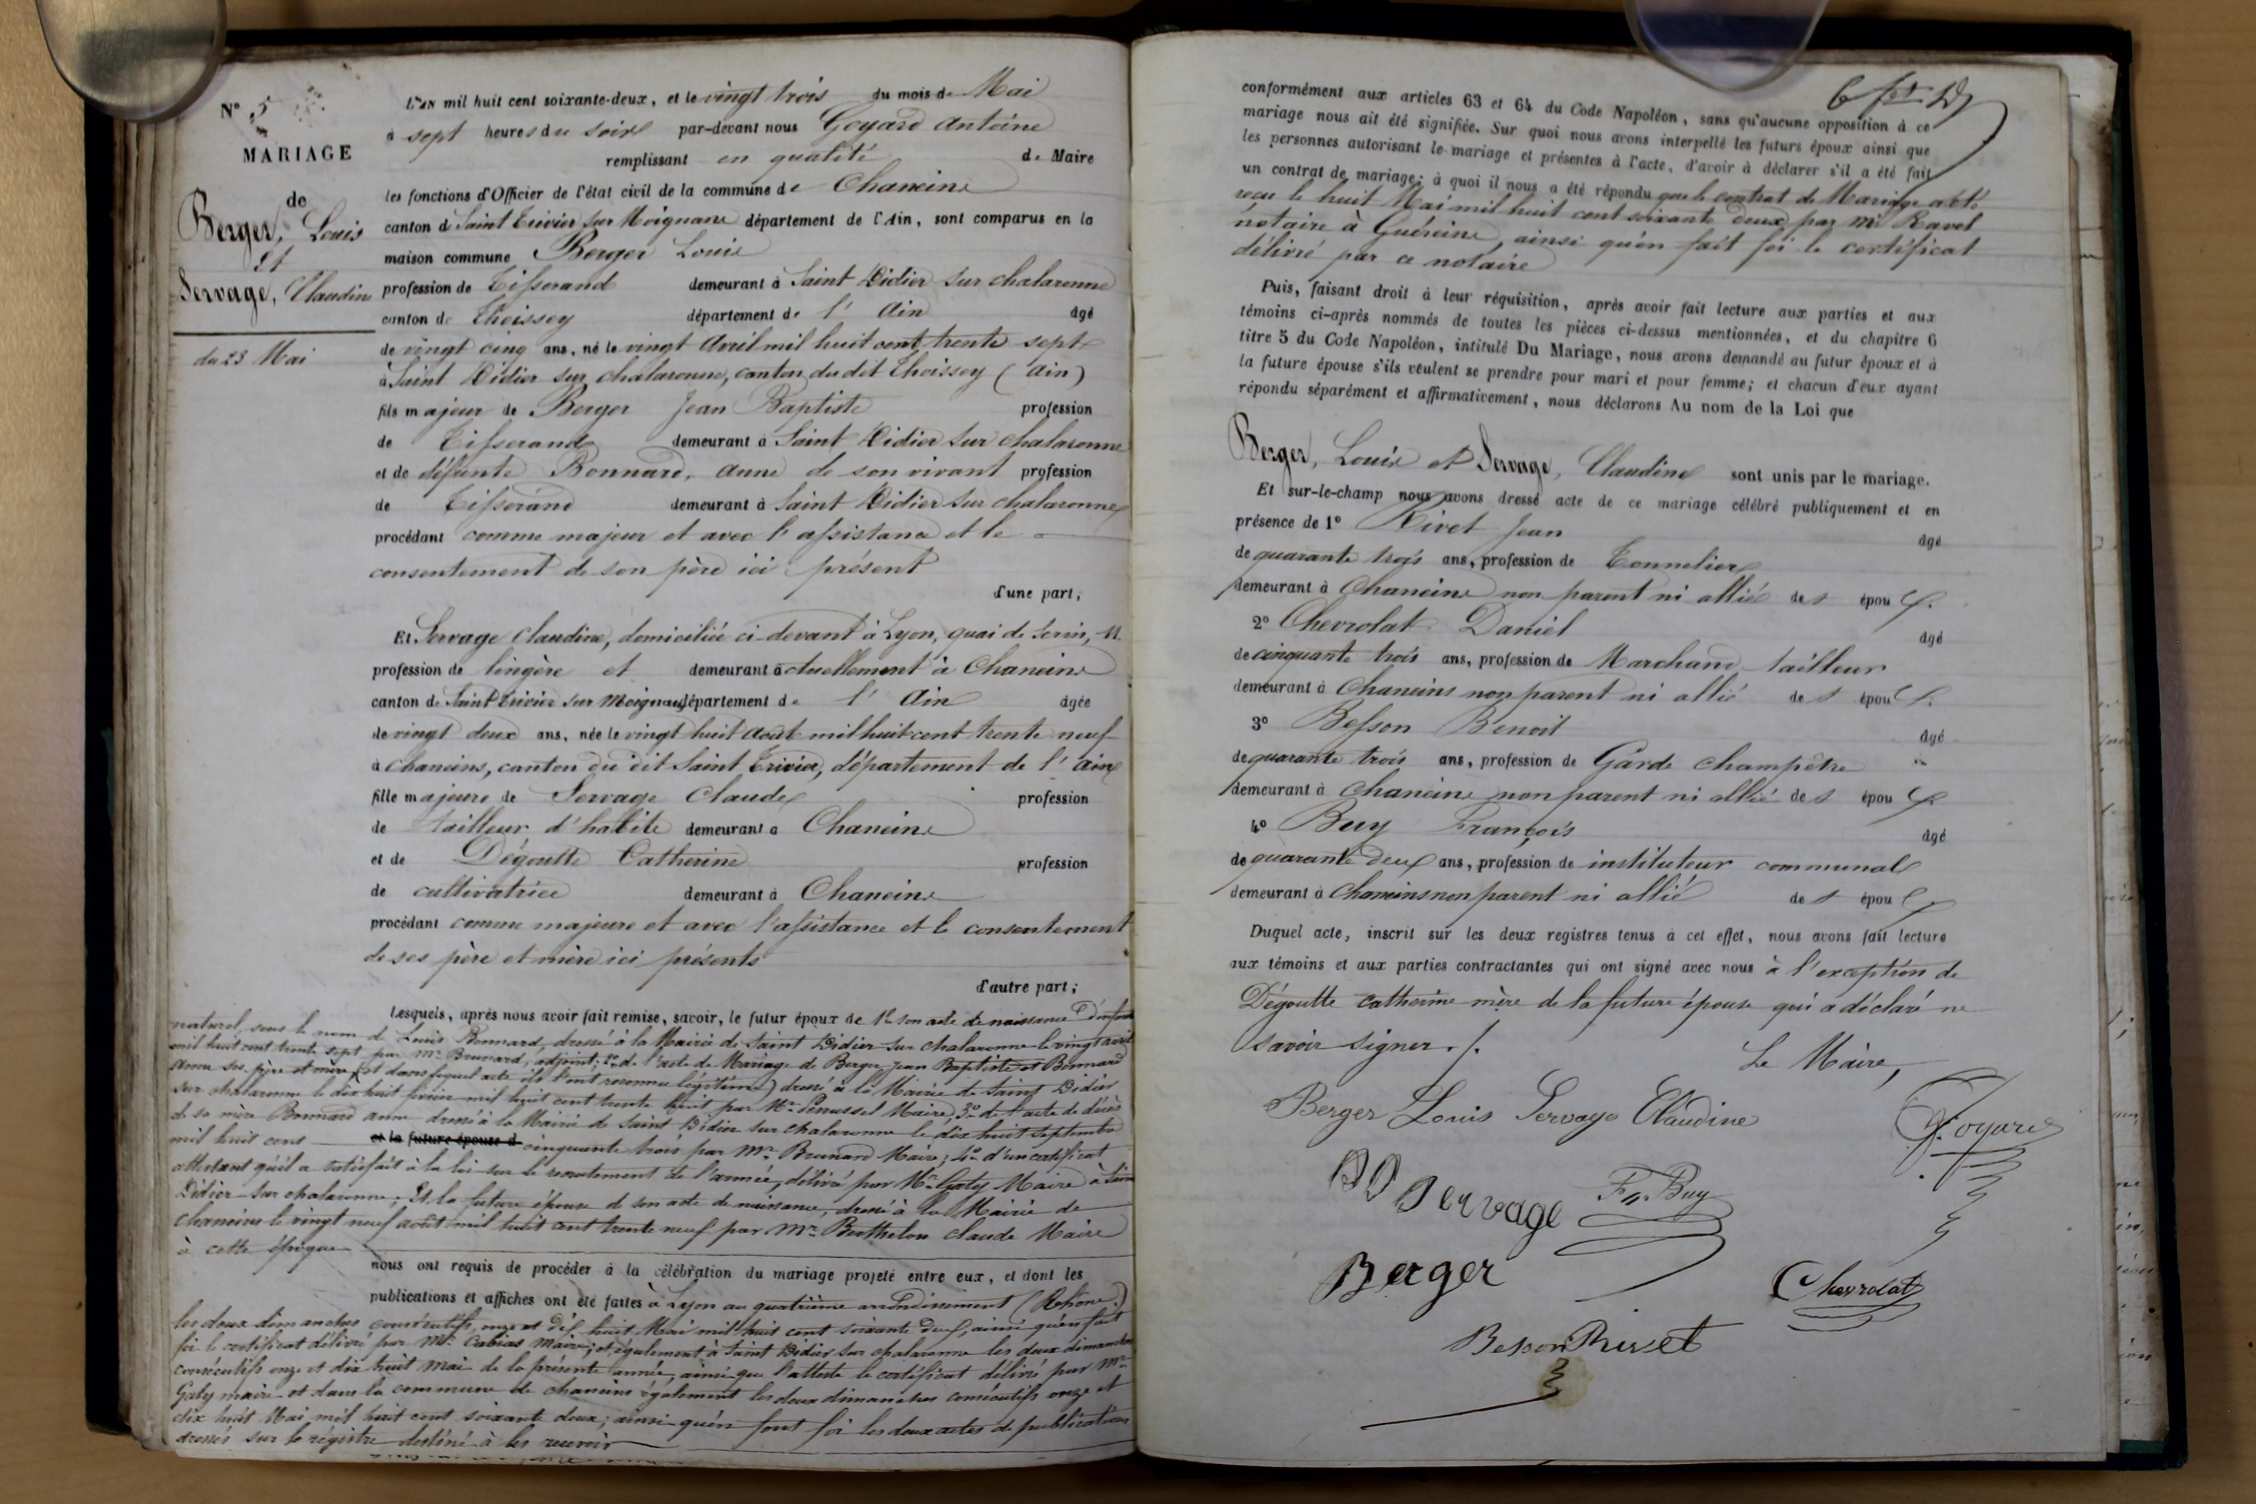 N° 5
MARIAGE
de
Berger, Louis
et
Servage, Claudine
du 23 Mai
L'an mil huit cent soixante-deux, et le vingt trois du mois de Mai
à sept heures du soir par-devant nous Goyard Antoine
remplissant en qualité de Maire
les fonctions d'Officier de l'état civil de la commune de Chaneins
canton de Saint Trivier sur Moignans département de l'Ain, sont comparus en la
maison commune Berger Louis
profession de Tisserand demeurant à Saint Didier sur chalaronne
canton de Thoissey département de l'Ain âgé
de vingt cinq ans, né le vingt Avril mil huit cent trente sept
à Saint Didier sur chalaronne, canton du dit Thoissey (Ain)
fils majeur de Berger Jean Baptiste profession
de Tisserand demeurant à Saint Didier sur chalaronne
et de défunte Bonnard, anne de son vivant profession
de Tisserand demeurant à Saint Didier sur chalaronne
procédant comme majeur et avec l'assistance et le
consentement de son père ici présent
d'une part;
Et Servage Claudine, domiciliée ci-devant à Lyon, quai de Serin, 11
profession de lingère et demeurant actuellement à Chaneins
canton de Saint Trivier sur Moignans département de l'Ain âgée
de vingt deux ans, née le vingt huit août mil huit cent trente neuf
à chaneins, canton du dit Saint Trivier, département de l'Ain
fille majeure de Servage Claude profession
de tailleur d'habits demeurant à Chaneins
et de Dégoutte Catherine profession
de cultivatrice demeurant à Chaneins
procédant comme majeure et avec l'assistance et le consentement
de ses père et mère ici présents
d'autre part;
Lesquels, après nous avoir fait remise, savoir, le futur époux de 1° son acte de naissance d'enfant
naturel, sous le nom de Louis Bonnard, dressé à la Mairie de Saint Didier sur chalaronne le vingt avril
mil huit cent trente sept par Mr Brunard, adjoint; 2° de l'acte de Mariage de Berger Jean Baptiste et Bonnard
anne ses père et mère (et dans lequel acte ils l'ont reconnu légitime) dressé à la Mairie de Saint Didier
sur chalaronne le dix huit février mil huit cent trente huit par Mr Maire; 3° de l'acte de décès
de sa mère Bonnard anne dressé à la Mairie de Saint Didier sur chalaronne le dix huit septembre
mil huit cent et la future épouse d cinquante trois par Mr Brunard Maire; 4° d'un certificat
attestant qu'il a satisfait à la loi sur le recrutement de l'armée, délivré par Mr Galy Maire à Saint
Didier sur chalaronne; Et la future épouse de son acte de naissance, dressé à la Mairie de
chaneins le vingt neuf août mil huit cent trente neuf par Mr Berthelon claude Maire
à cette époque
nous ont requis de procéder à la célébration du mariage projeté entre eux, et dont les
publications et affiches ont été faites à Lyon au quatrième arrondissement (Rhône)
les deux dimanches consécutifs, onze et dix huit Mai mil huit cent soixante deux, ainsi qu'en fait
foi le certificat délivré par Mr Cabias Maire; et également à Saint Didier sur chalaronne les deux dimanches
consécutifs onze et dix huit mai de la présente année, ainsi que l'atteste le certificat délivré par Mr
Galy maire et dans la commune de chaneins également les deux dimanches consécutifs onze et
dix huit Mai mil huit cent soixante deux; ainsi qu'en font foi les deux actes de publications
dressés sur le registre destiné à les recevoir
conformément aux articles 63 et 64 du Code Napoléon, sans qu'aucune opposition à ce
mariage nous ait été signifiée. Sur quoi nous avons interpellé les futurs époux ainsi que
les personnes autorisant le mariage et présentes à l'acte, d'avoir à déclarer s'il a été fait
un contrat de mariage; à quoi il nous a été répondu que le contrat de Mariage a été
reçu le huit Mai mil huit cent soixante deux par Mr Ravel
notaire à Guéreins, ainsi qu'en fait foi le certificat
délivré par ce notaire
Puis, faisant droit à leur réquisition, après avoir fait lecture aux parties et aux
témoins ci-après nommés de toutes les pièces ci-dessus mentionnées, et du chapitre 6
titre 5 du Code Napoléon, intitulé Du Mariage, nous avons demandé au futur époux et à
la future épouse s'ils veulent se prendre pour mari et pour femme; et chacun d'eux ayant
répondu séparément et affirmativement, nous déclarons Au nom de la Loi que
Berger, Louis et Servage, Claudine sont unis par le mariage.
Et sur-le-champ nous avons dressé acte de ce mariage célébré publiquement et en
présence de 1° Rivet Jean âgé
de quarante trois ans, profession de Tonnelier
demeurant à Chaneins non parent ni allié des époux.
2° Chevrolat Daniel âgé
de cinquante trois ans, profession de Marchand tailleur
demeurant à Chaneins non parent ni allié des époux.
3° Besson Benoit âgé
de quarante trois ans, profession de Garde champêtre
demeurant à Chaneins non parent ni allié des époux
4° Buy François âgé
de quarante deux ans, profession de instituteur communal
demeurant à Chaneins non parent ni allié des époux
Duquel acte, inscrit sur les deux registres tenus à cet effet, nous avons fait lecture
aux témoins et aux parties contractantes qui ont signé avec nous à l'exception de
Dégoutte Catherine mère de la future épouse qui a déclaré ne
savoir signer ./.
Le Maire,
Berger Louis Servage Claudine
Goyard
Servage
F. Buy
Berger
Chevrolat
Besson Rivet